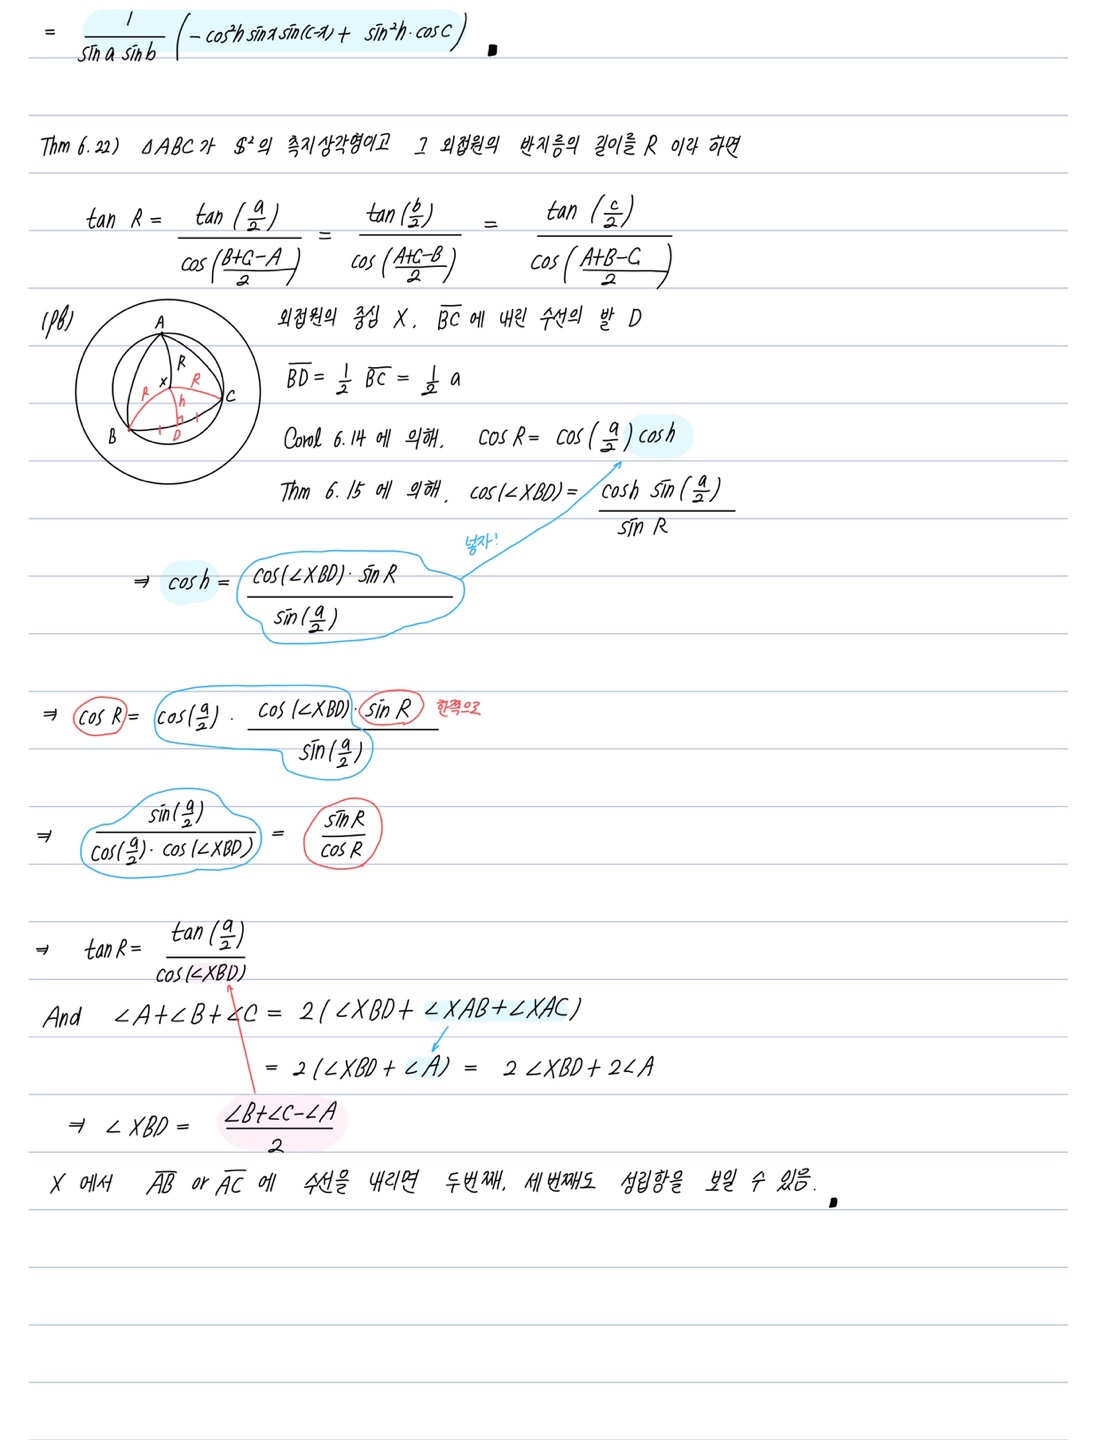 = 1/(sin a sin b) (- cos²h sin x sin(c-x) + sin²h · cos c) ■
Thm 6.22) △ABC가 S²의 측지삼각형이고 그 외접원의 반지름의 길이를 R 이라 하면
tan R = tan(a/2)/cos((B+C-A)/2) = tan(b/2)/cos((A+C-B)/2) = tan(c/2)/cos((A+B-C)/2)
(pf) 외접원의 중심 X, B̅C̅에 내린 수선의 발 D
A
R
X
R
R
h
C
B
D
B̅D̅ = 1/2 B̅C̅ = 1/2 a
Corol 6.14 에 의해, cos R = cos(a/2) cos h
Thm 6.15 에 의해, cos(∠XBD) = cos h sin(a/2)/sin R
넣자!
⇒ cos h = cos(∠XBD) · sin R/sin(a/2)
⇒ cos R = cos(a/2) · cos(∠XBD) · sin R/sin(a/2) 한쪽으로
⇒ sin(a/2)/(cos(a/2) · cos(∠XBD)) = sin R/cos R
⇒ tan R = tan(a/2)/cos(∠XBD)
And ∠A+∠B+∠C = 2(∠XBD + ∠XAB+∠XAC)
= 2(∠XBD + ∠A) = 2∠XBD + 2∠A
⇒ ∠XBD = (∠B+∠C-∠A)/2
X 에서 A̅B̅ or A̅C̅ 에 수선을 내리면 두번째, 세번째도 성립함을 보일 수 있음. ■